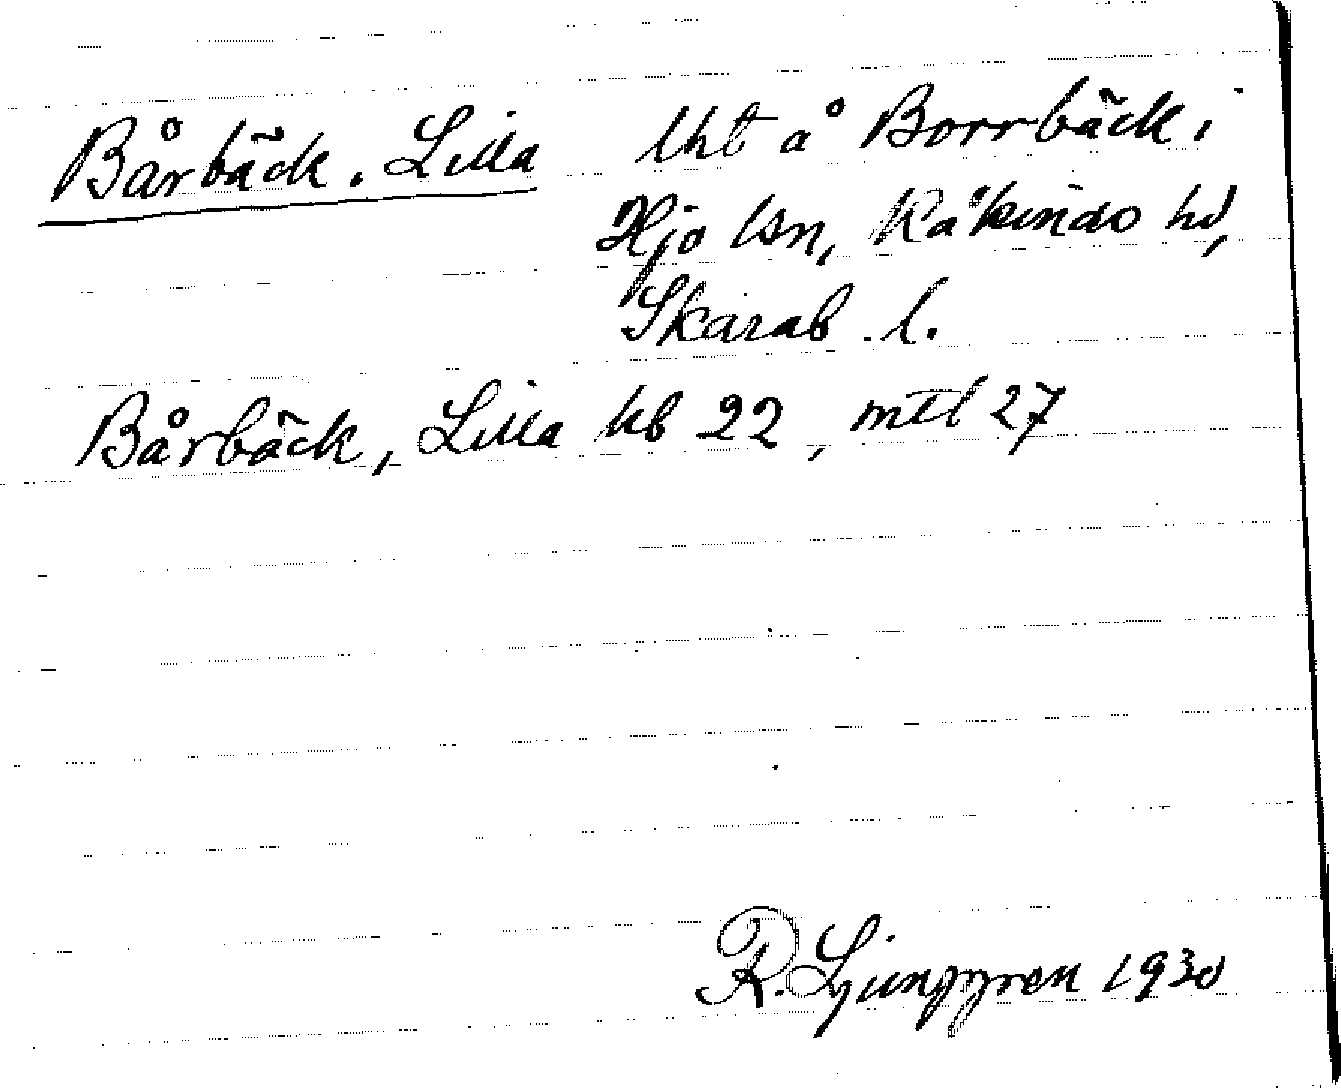 Bårbäck. Lilla lht å Borrbäck i
Hjo lsn, Kåkinds hd,
Skarab. l.
Bårbäck, Lilla hb 22, mtl 27
R. Ljunggren 1930